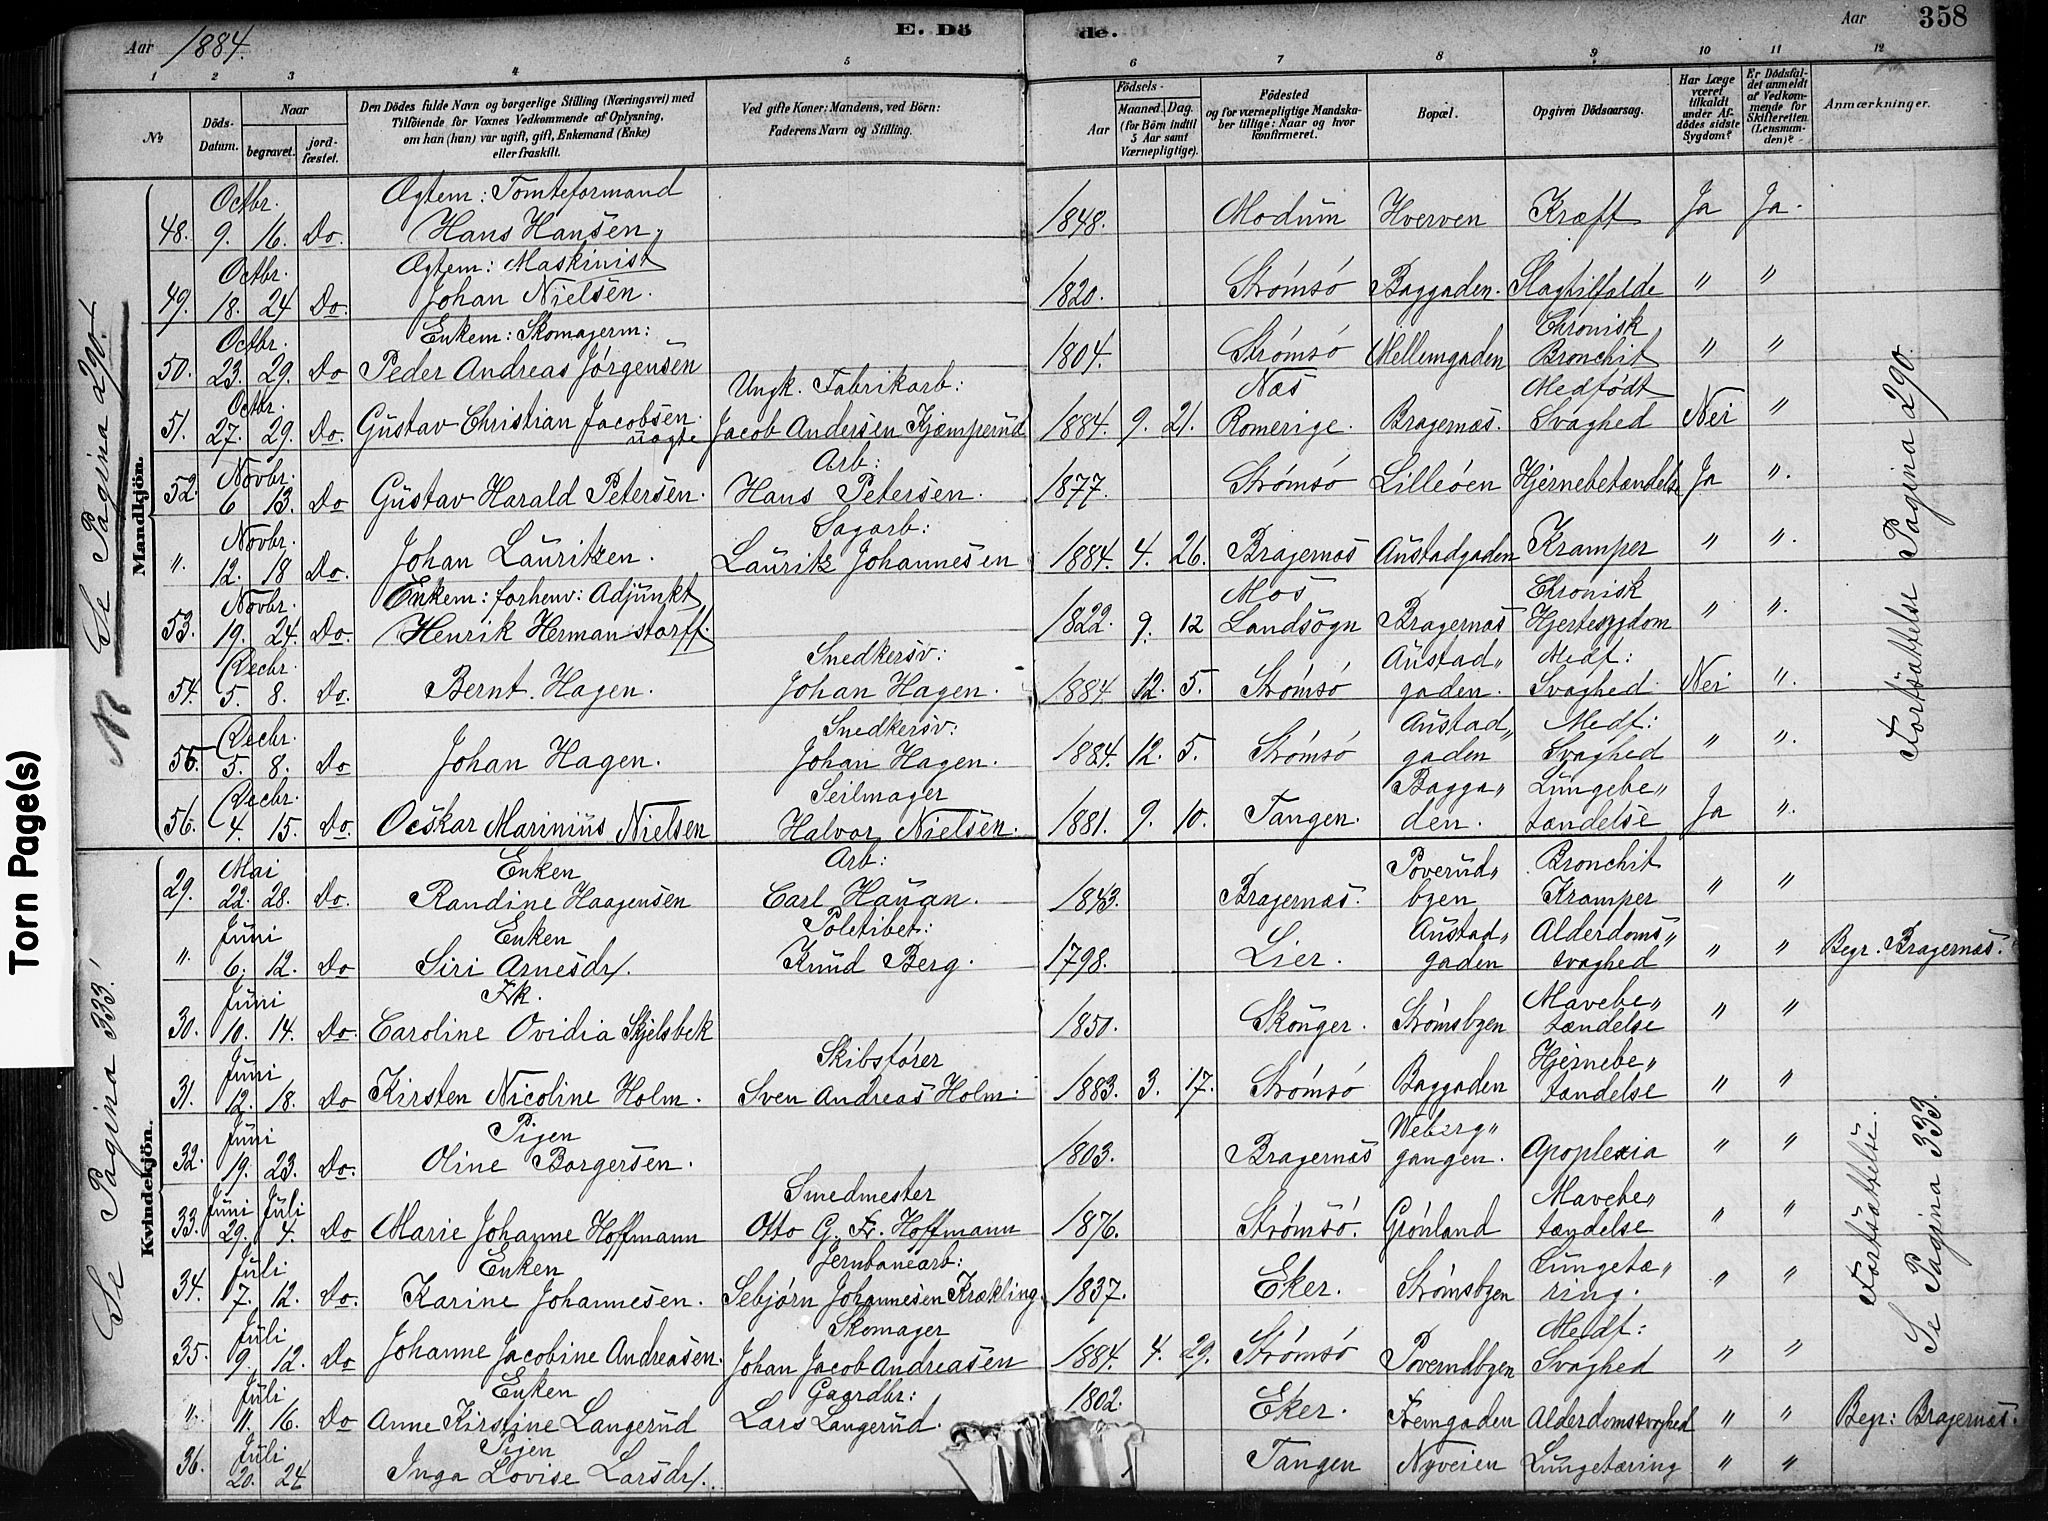 Aar 1884.
E. Dö de.
Aar 358
1 2 3 4 5 6 7 8 9 10 11 12
№ Döds-Datum. Naar begravet. jord-fæstet. Den Dödes fulde Navn og borgerlige Stilling (Næringsvei) med Tilföiende for Voxnes Vedkommende af Oplysning, om han (hun) var ugift, gift, Enkemand (Enke) eller fraskilt. Ved gifte Koner: Mandens, ved Börn: Faderens Navn og Stilling. Aar Födsels- Maaned. Dag. (for Börn indtil 5 Aar samt Værnepligtige). Födested og for værnepligtige Mandska-ber tillige: Naar og hvor konfirmeret. Bopæl. Opgiven Dödsaarsag. Har Læge været tilkaldt under Af-dödes sidste Sygdom? Er Dödsfal-det anmeldt af Vedkom-mende for Skifteretten (Lensman-den)? Anmærkninger.
Torn Page(s)
Mandkjön.
Se Pagina 290.
Octbr. Ægtem: Tomteformand
48. 9. 16. Do. Hans Hansen. 1848. Modum Hverven Kræft Ja Ja.
Octbr. Ægtem: Maskinist
49. 18. 24 Do. Johan Nielsen. 1820. Strømsø Baggaden. Slagtilfælde " "
Octbr. Enkem: Skomagerm: Chronisk
50. 23. 29. Do Peder Andreas Jørgensen 1804. Strømsø Mellemgaden Bronchit " "
Octbr. Ungk. Fabrikarb: Næs Medfødt
51. 27. 29. Do. Gustav Christian Jacobsen uægte Jacob Andersen Kjæmperud 1884. 9. 21. Romerige. Bragernæs. Svaghed Nei "
Novbr. Arb:
52. 6 13. Do Gustav Harald Petersen. Hans Petersen. 1877. Strømsø Lilleøen Hjernebetændelse Ja ".
Novbr. Sagarb:
" 12. 18 Do. Johan Lauritzen. Lauritz Johannesen 1884. 4. 26. Bragernæs Austadgaden Kramper " ".
Novbr. Enkem: forhenv: Adjunkt Mos Chronisk
53. 19. 24. Do. Henrik Hermanstorff. 1822. 9. 12 Landsogn Bragernæs Hjertesygdom " ".
Decbr. Snedkersv: Austad„ Medf:
54. 5. 8. Do. Bernt Hagen. Johan Hagen. 1884. 12. 5. Strømsø gaden. Svaghed Nei ".
Decbr. Snedkersv: Austad„ Medf:
55. 5. 8. Do Johan Hagen. Johan Hagen. 1884. 12. 5. Strømsø gaden Svaghed " ".
Decbr. Seilmager Bagga„ Lungebe„
56. 4. 15. Do. Oeskar Marinius Nielsen Halvor Nielsen. 1881. 9. 10. Tangen. den. tændelse Ja ".
Fortsættelse Pagina 290.
Kvindekjön.
Se Pagina 333.
Mai Enken Arb: Poverud„ Bronchit
29. 22. 28. Do. Randine Haagensen Carl Hauan. 1843. Bragernæs. bgen Kramper " "
Juni Enken Poletibet: Austad„ Alderdoms„
" 6. 12. Do Siri Arnesdr. Knud Berg. 1798. Lier. gaden svaghed " " Begr. Bragernæs.
Juni Frk. Mavebe„
30. 10. 14. Do. Caroline Ovidia Skjelsbek 1850. Skouger. Strømsbgen tændelse " "
Juni Skibsfører Hjernebe„
31. 12. 18. Do Kirsten Nicoline Holm. Sven Andreas Holm: 1883. 3. 17. Strømsø Baggaden tændelse " "
Juni Pigen Weberg„
32. 19. 23. Do. Oline Borgersen. 1803. Bragernæs gangen. Apoplexia " "
Juni Juli Smedmester Mavebe„
33. 29. 4. Do Marie Johanne Hoffmann Otto G. Fr. Hoffmann 1876. Strømsø. Grønland tændelse " "
Juli Enken Jernbanearb: Lungetæ„
34. 7. 12. Do. Karine Johannesen. Sebjørn Johannesen Krækling. 1837. Eker. Strømsbgen ring. " "
Juli Skomager Medf:
35. 9. 12. Do Johanne Jacobine Andreasen. Johan Jacob Andreasen 1884. 4. 29. Strømsø Poverudbgen Svaghed " "
Juli Enken Gaardbr:
" 11. 16. Do Anne Kirstine Langerud Lars Langerud. 1802. Eker. Fremgaden Alderdomssvaghed " " Begr: Bragernæs.
Juli Pigen
36. 20. 24 Inga Lovise Larsdr. Tangen Nyveien Lungetæring " "
Fortsættelse.
Se Pagina 333.